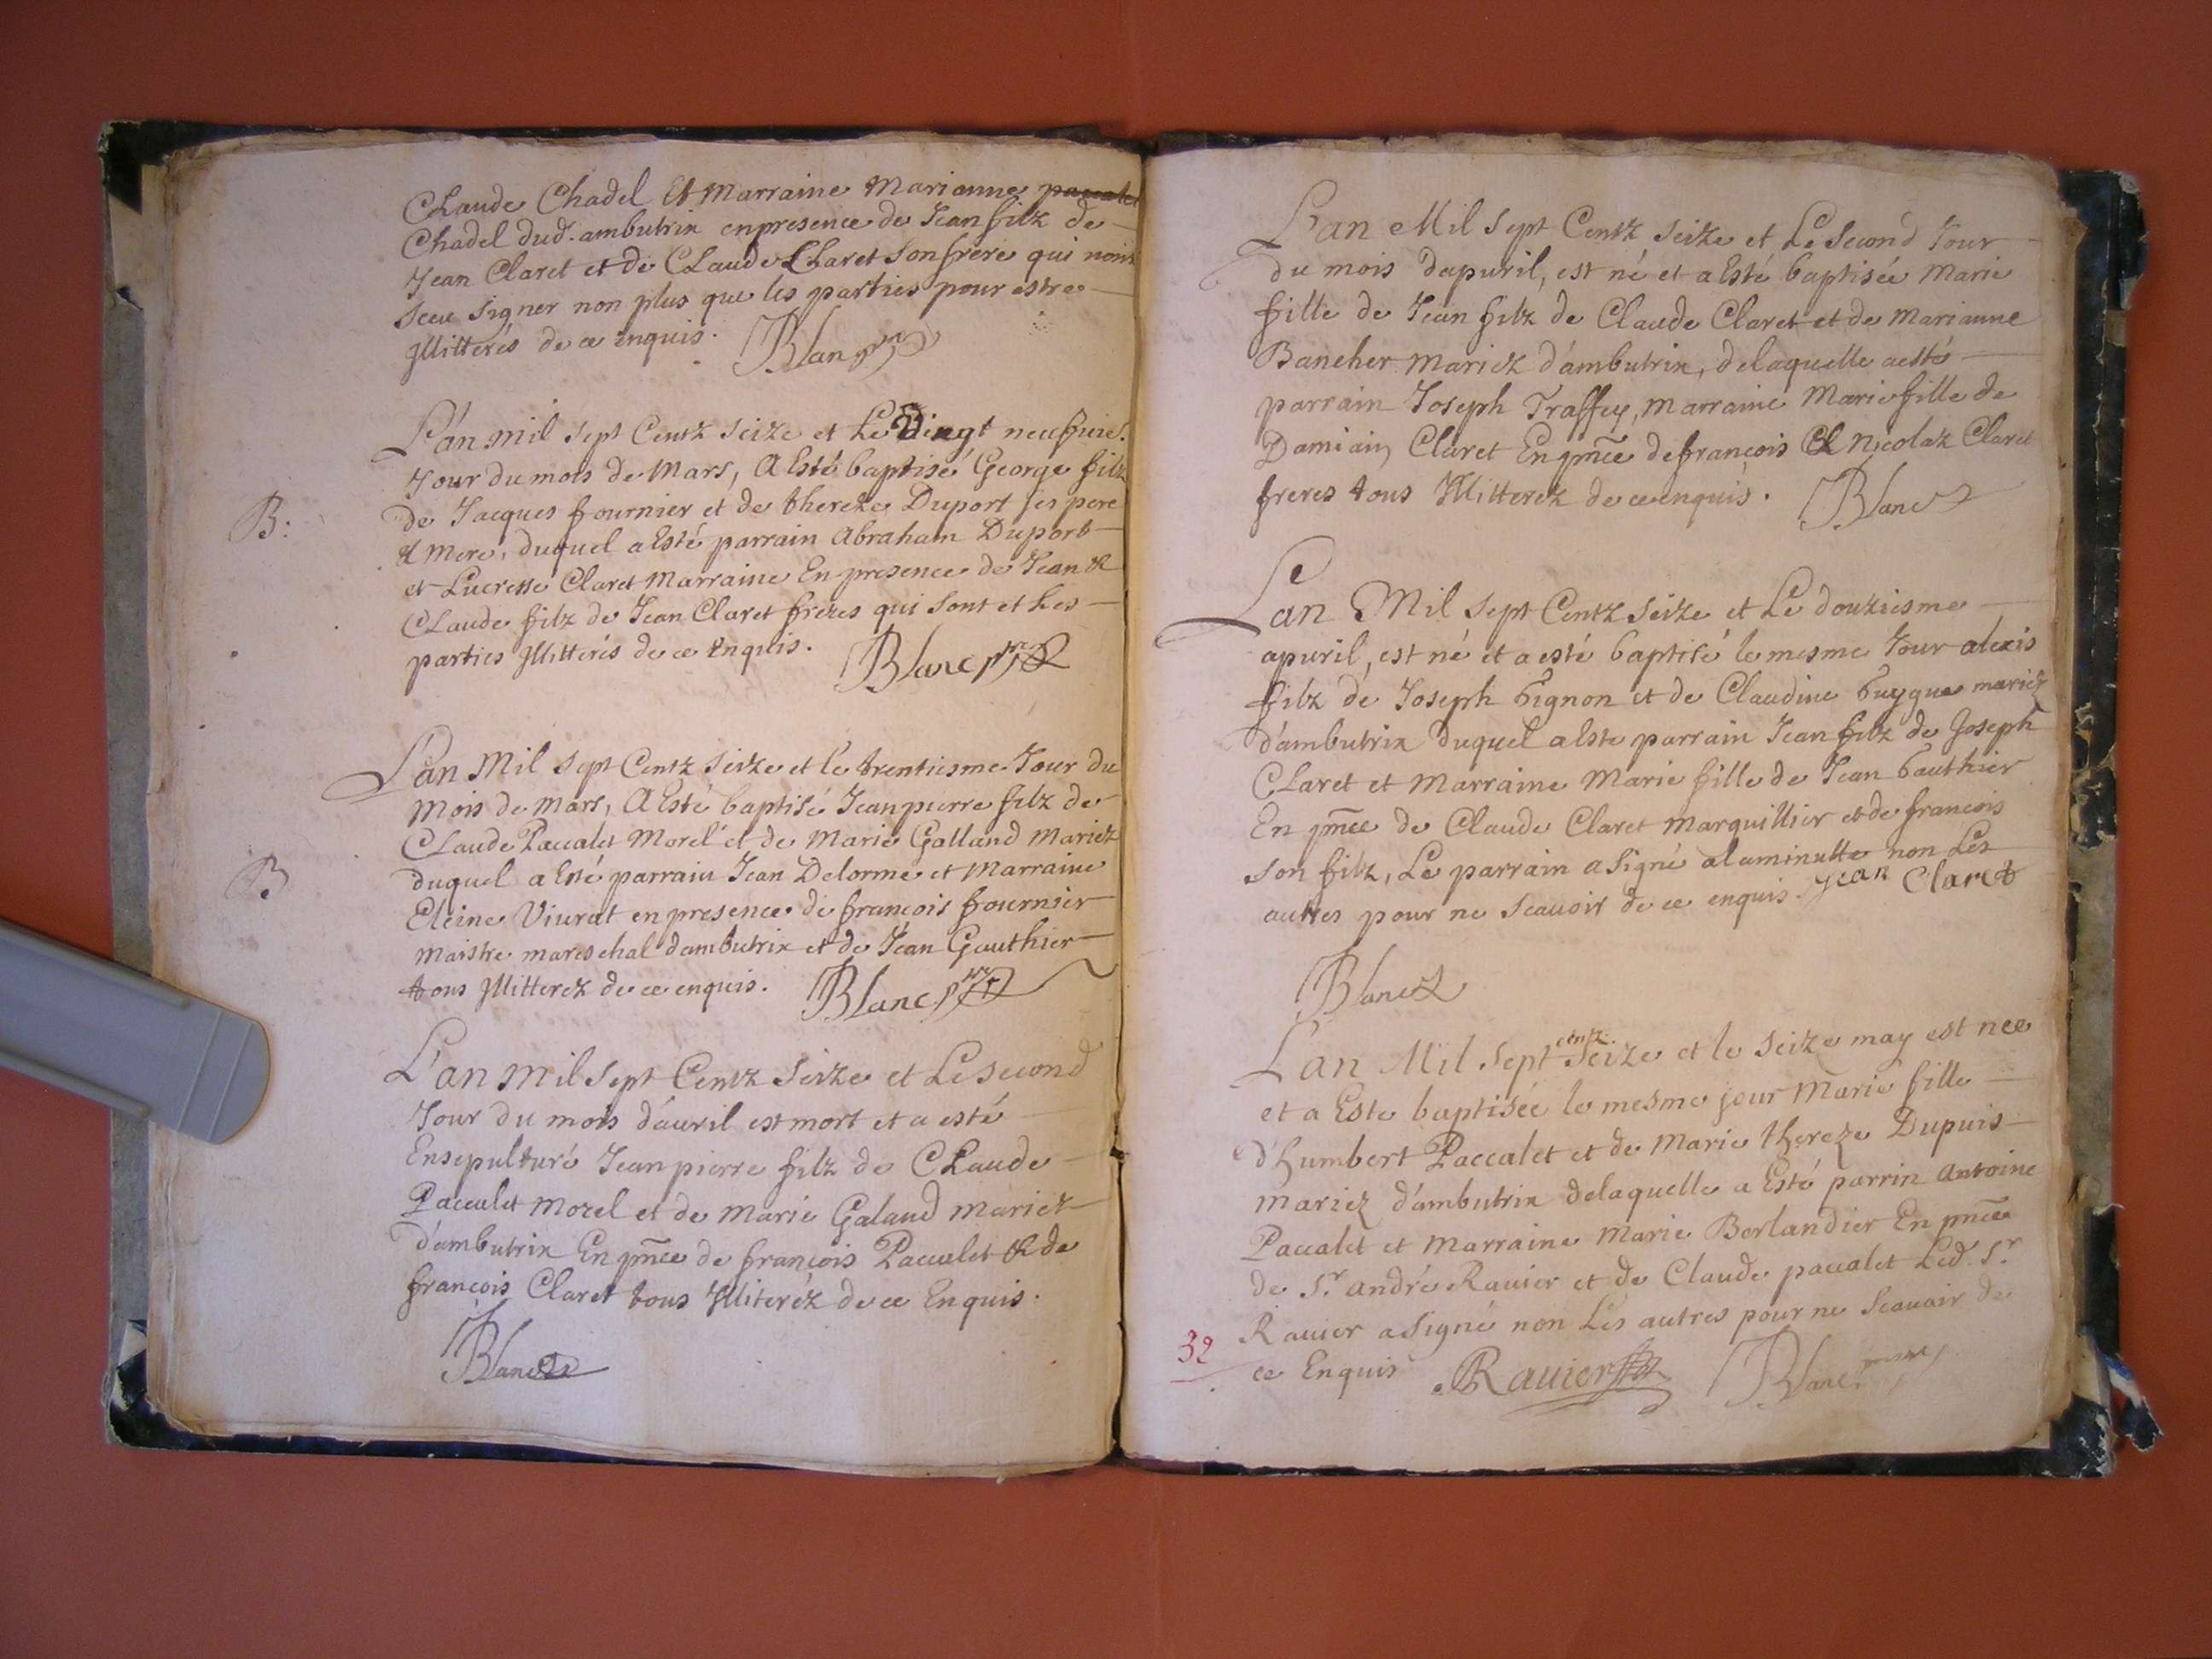 Claude Chadel Et Marraine Marianne paccalet
Chadel dud. ambutrix enpresence de Jean filz de
Jean Claret et de Claude Claret son frere qui nont
sceu signer non plus que les parties pour estre
Jllitterés de ce enquis. Blanc ptre
L'an mil sept Centz seize et Le Vingt neufuie.
Jour du mois de Mars, A Esté baptisé George filz
B:
de Jacques fournier et de thereze Duport ses pere
& mere, duquel a Esté parrain Abraham Duport
et Lucresse Claret Marraine En presence de Jean &
Claude filz de Jean Claret freres qui sont et Les
parties Jllitterés de ce Enquis. Blanc ptre
L'an Mil sept Centz seize et le trentiesme Jour du
Mois de Mars, A Esté baptisé Jeanpierre filz de
Claude Paccalet Morel et de Marie Galland Mariez
B
duquel a Esté parrain Jean Delorme et Marraine
Eleine Viurat en presence de françois fournier
Maistre mareschal dambutrix et de Jean Gauthier
tous Jllitterez de ce enquis. Blanc ptre
L'an mil sept Centz seize et Le second
Jour du mois d'auril est mort et a esté
Ensepulturé Jeanpierre filz de Claude
Paccalet Morel et de Marie Galand mariez
d'ambutrix En pnce de françois Paccalet & de
françois Claret tous Jlliteréz de ce Enquis.
Blanc
L'an Mil sept Centz seize et Le second Jour
du mois dapuril, est né et a Esté baptisée Marie
fille de Jean filz de Claude Claret et de Marianne
Bancher mariez d'ambutrix, delaquelle aesté
parrain Joseph Traffey, Marraine Marie fille de
Damiain Claret En pnce de françois & Nicolaz Claret
freres tous Jllitterez de ce enquis. Blanc
Lan Mil sept Centz seize et Le douziesme
apuril, est né et a esté baptisé le mesme Jour alexis
filz de Joseph bignon et de Claudine buygue mariez
d'ambutrix duquel a Este parrain Jean filz de Joseph
Claret et Marraine Marie fille de Jean Gauthier
En pnce de Claude Claret marguillier et de françois
son filz, Le parrain a signé alaminutte non Les
autres pour ne scauoir de ce enquis. Jean Claret
Blanc
L'an Mil sept centz seize et le seize may est nee
et a Este baptisée le mesme jour Marie fille
d'humbert Paccalet et de Marie thereze Dupuis
mariez d'ambutrix delaquelle a Esté parrin Antoine
Paccalet et Marraine Marie Berlandier En pnce
de Sr. andré Rauier et de Claude paccalet Led. Sr.
Rauier a signé non Les autres pour ne scauoir de
ce Enquis Rauier Blanc
32